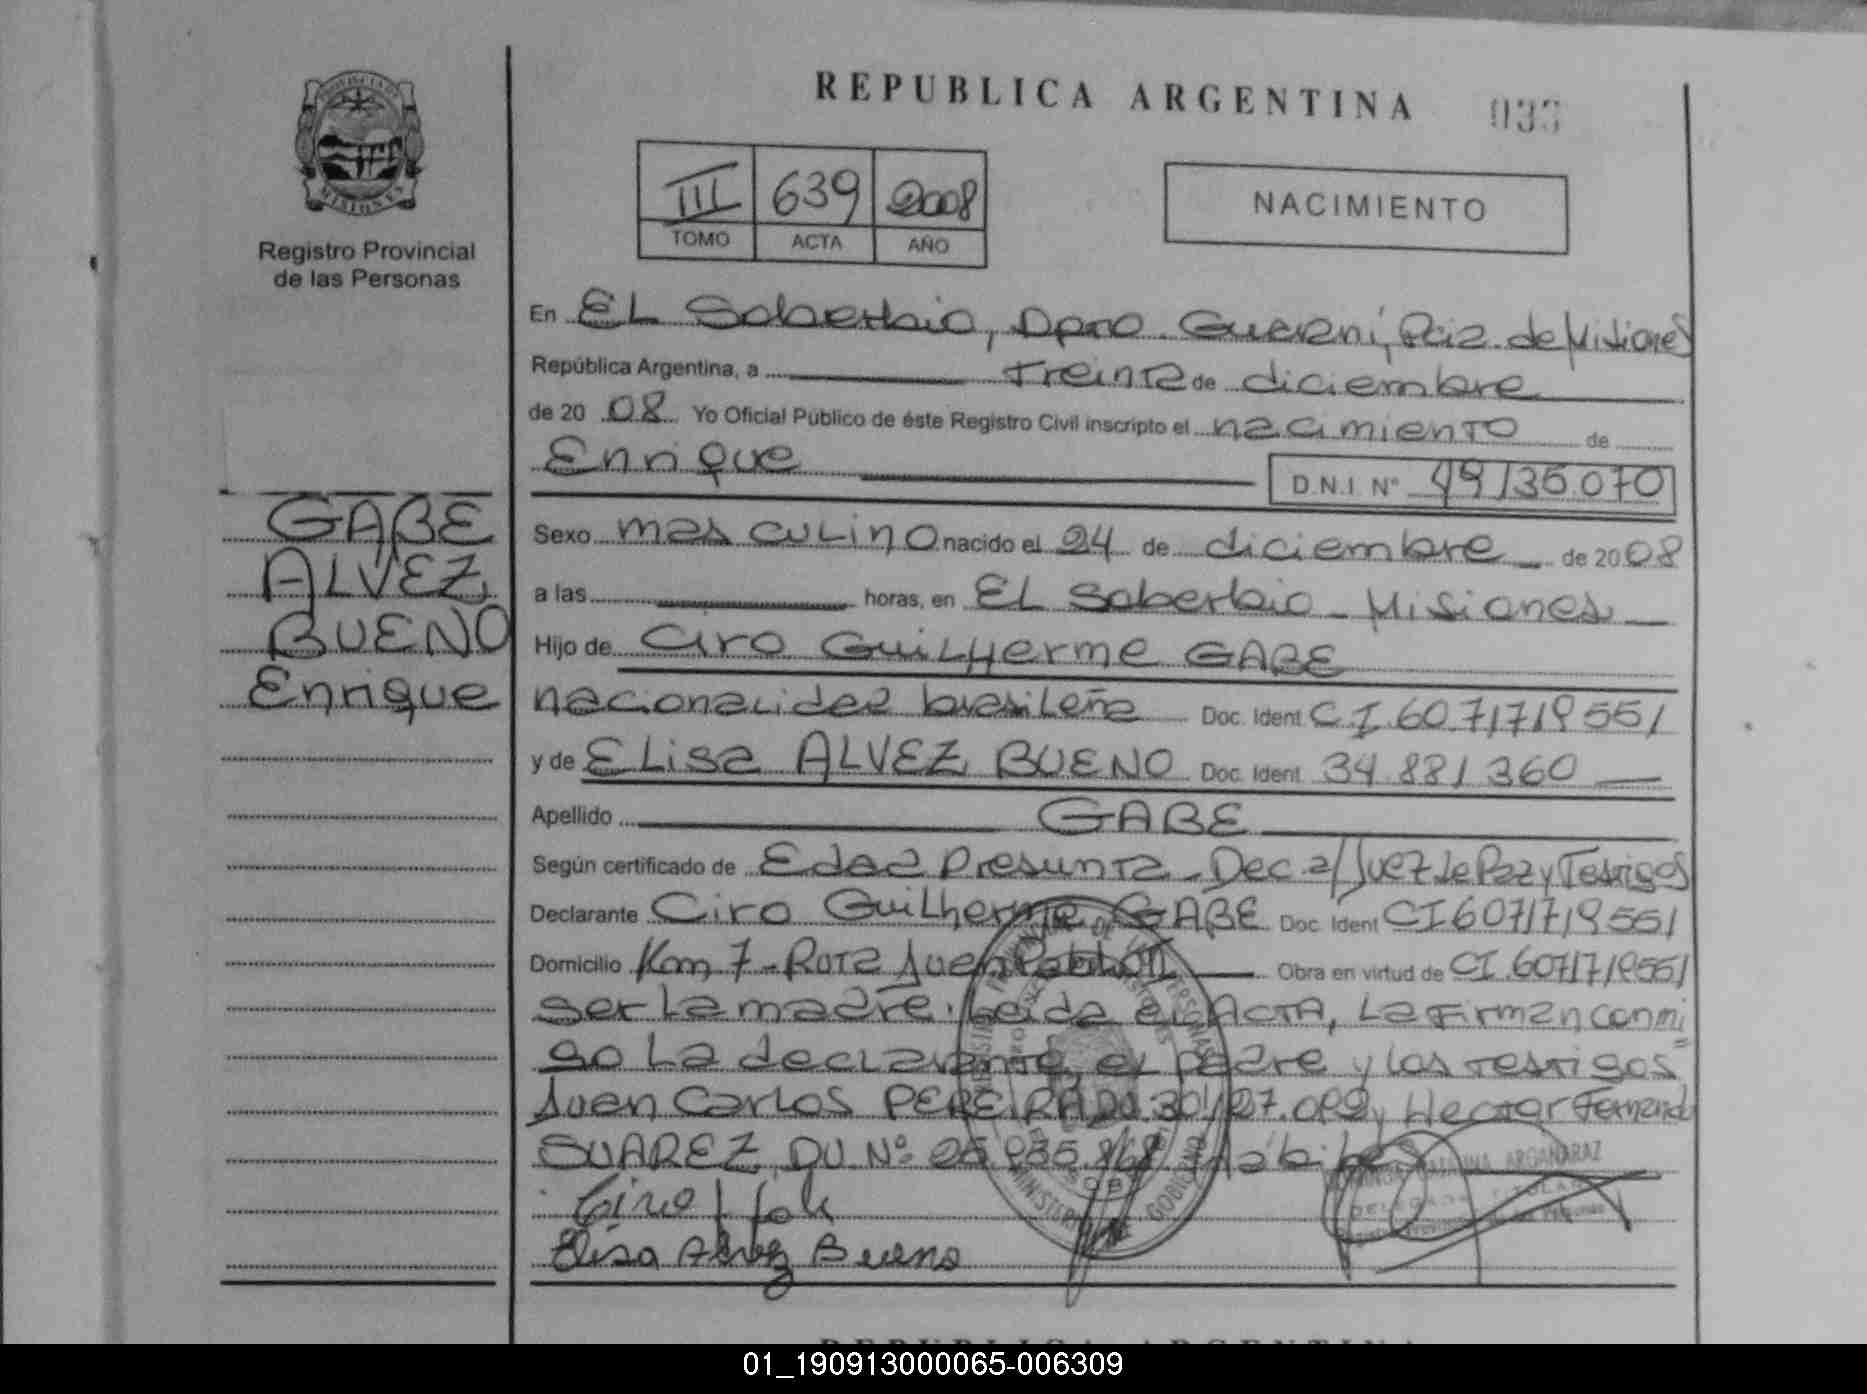 REPUBLICA ARGENTINA
MISIONES
Registro Provincial
de las Personas
III 639 2008
TOMO ACTA AÑO
NACIMIENTO
En EL Soberbio, Dpto. Guarani, Pcia. de Misiones
República Argentina, a treinta de diciembre
de 20 08 Yo Oficial Público de éste Registro Civil inscripto el nacimiento de
Enrique
D.N.I. Nº 49135.070
GABE
ALVEZ
BUENO
Enrique
Sexo masculino nacido el 24 de diciembre de 2008
a las horas, en EL Soberbio - Misiones
Hijo de Ciro GuiLHerme GABE
nacionalidad brasileña Doc. Ident. C.I. 6071719551
y de ELisa ALVEZ BUENO Doc. Ident. 34 881 360
Apellido GABE
Según certificado de Edad Presunta - Dec. a/Juez de Paz y Testigos
Declarante Ciro GuiLherme GABE Doc. Ident CI 6071719551
Domicilio Km 7 - Ruta Juan Obra en virtud de CI. 6071719551
ser La madre. Leida el ACTA, La Firman conmi
go La declarante, el padre y los testigos
Juan Carlos PEREIRA DU. y Hector Fernando
SUAREZ DU. Nº habiles
MINISTERIO DE GOBIERNO
ARGAÑARAZ
Ciro
Elisa Alvez Bueno
REPUBLICA ARGENTINA
01_190913000065-006309